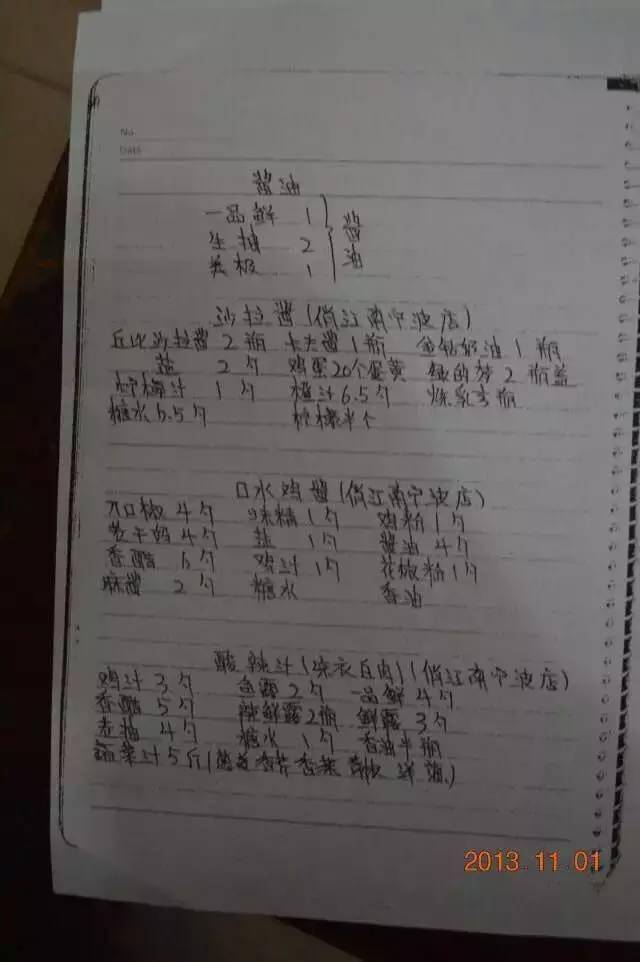 No
Date
醬油
一品鲜 1
生抽 2 醬油
美极 1
沙拉醬(俏江南宁波店)
丘比沙拉醬2瓶 卡夫醬1瓶 奶油1瓶
盐 2勺 鸡蛋20个蛋黄 2瓶盖
柠檬汁 1勺 橙汁6.5勺 炼乳 瓶
糖水6.5勺 柠檬半个
口水鸡醬(俏江南宁波店)
椒4勺 味精1勺 鸡粉1勺
老干妈4勺 盐 1勺 醬油4勺
香醋 6勺 鸡汁1勺 花椒粉1勺
麻醬 2勺 糖水 香油
酸辣汁( 衣白肉)(俏江南宁波店)
鸡汁3勺 鱼露2勺 一品鲜4勺
香醋 5勺 辣鲜露2瓶 鲜露3勺
老抽 4勺 糖水 1勺 香油半瓶
蔬菜汁5斤( 香芹香菜 )
2013.11.01